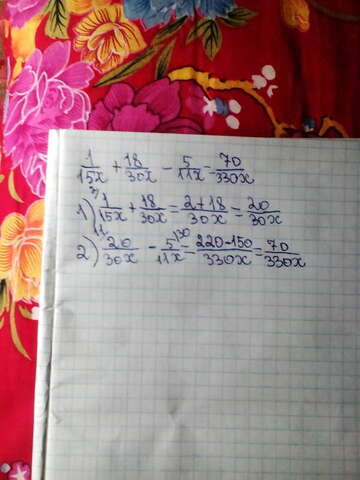 1/15x + 18/30x - 5/11x = 70/330x
1) 2) 1/15x + 18/30x = 2+18/30x = 20/30x
2) 11) 20/30x - 5/11x (30 = 220-150/330x = 70/330x